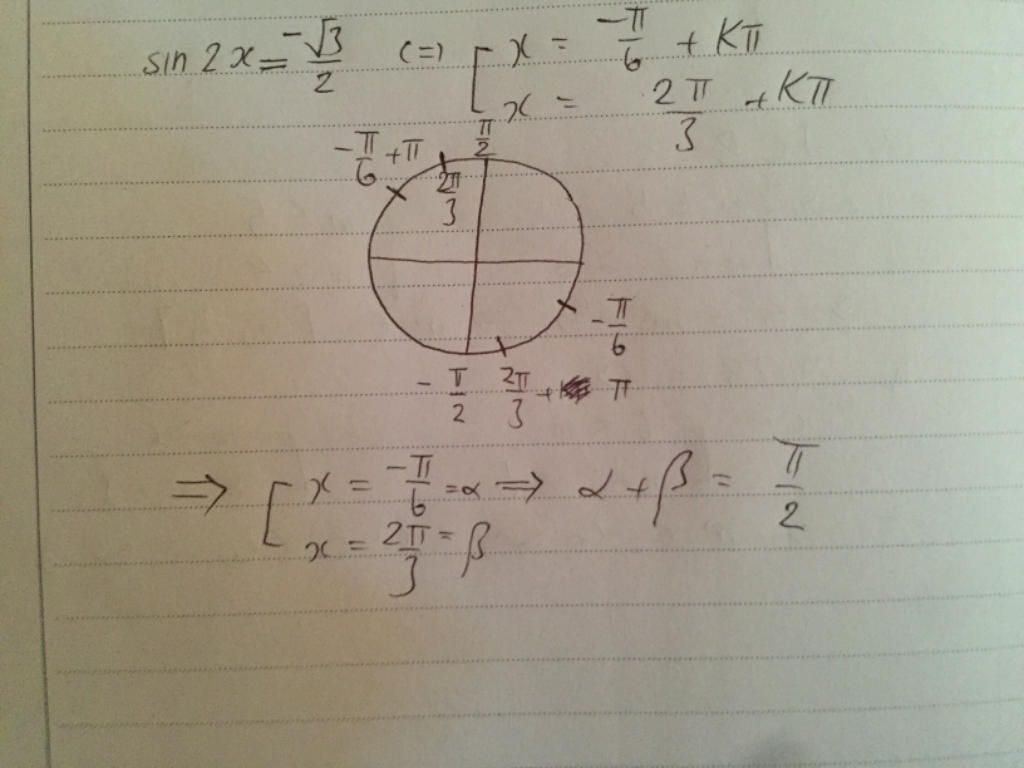 sin 2x = -√3/2 (=) [ x = -π/6 + Kπ
x = 2π/3 + Kπ
-π/6 + π
π/2
2π/3
-π/6
-π/2
2π/3 + π
=> [ x = -π/6 = α => α + β = π/2
x = 2π/3 = β